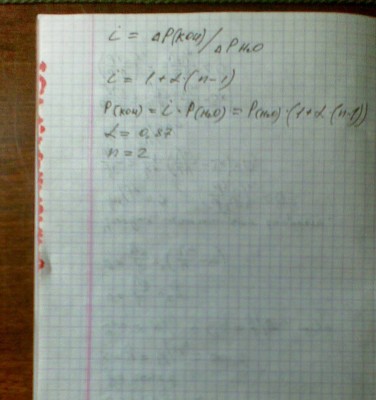 i = ΔP(KOH)/ΔPH₂O
i = 1+α·(n-1)
P(KOH) = i · P(H₂O) = P(H₂O)·(1+α·(n-1))
α = 0,87
n = 2